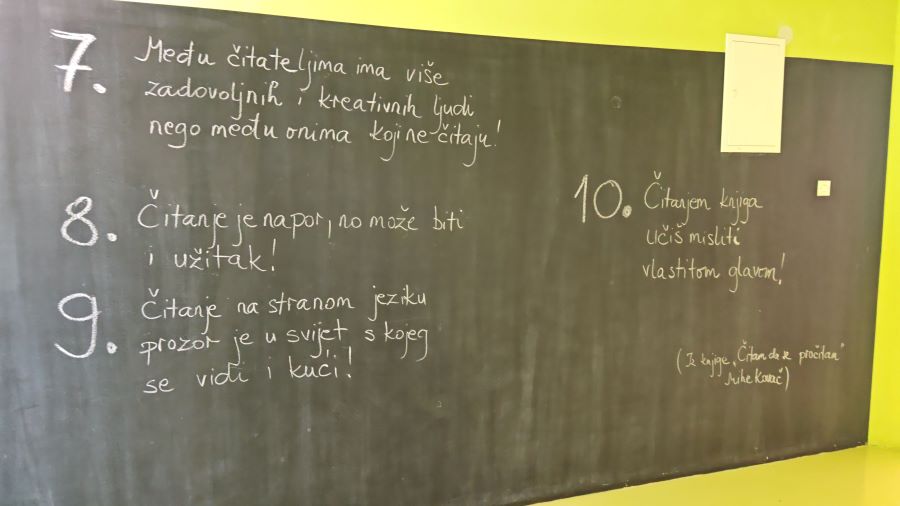 7. Među čitateljima ima više
zadovoljnih i kreativnih ljudi
nego među onima koji ne čitaju!
8. Čitanje je napor, no može biti
i užitak!
9. Čitanje na stranom jeziku
prozor je u svijet s kojeg
se vidi i kući!
10. Čitanjem knjiga
učiš misliti
vlastitom glavom!
(Iz knjige „Čitam da se pročitam"
Mihe Kovač)